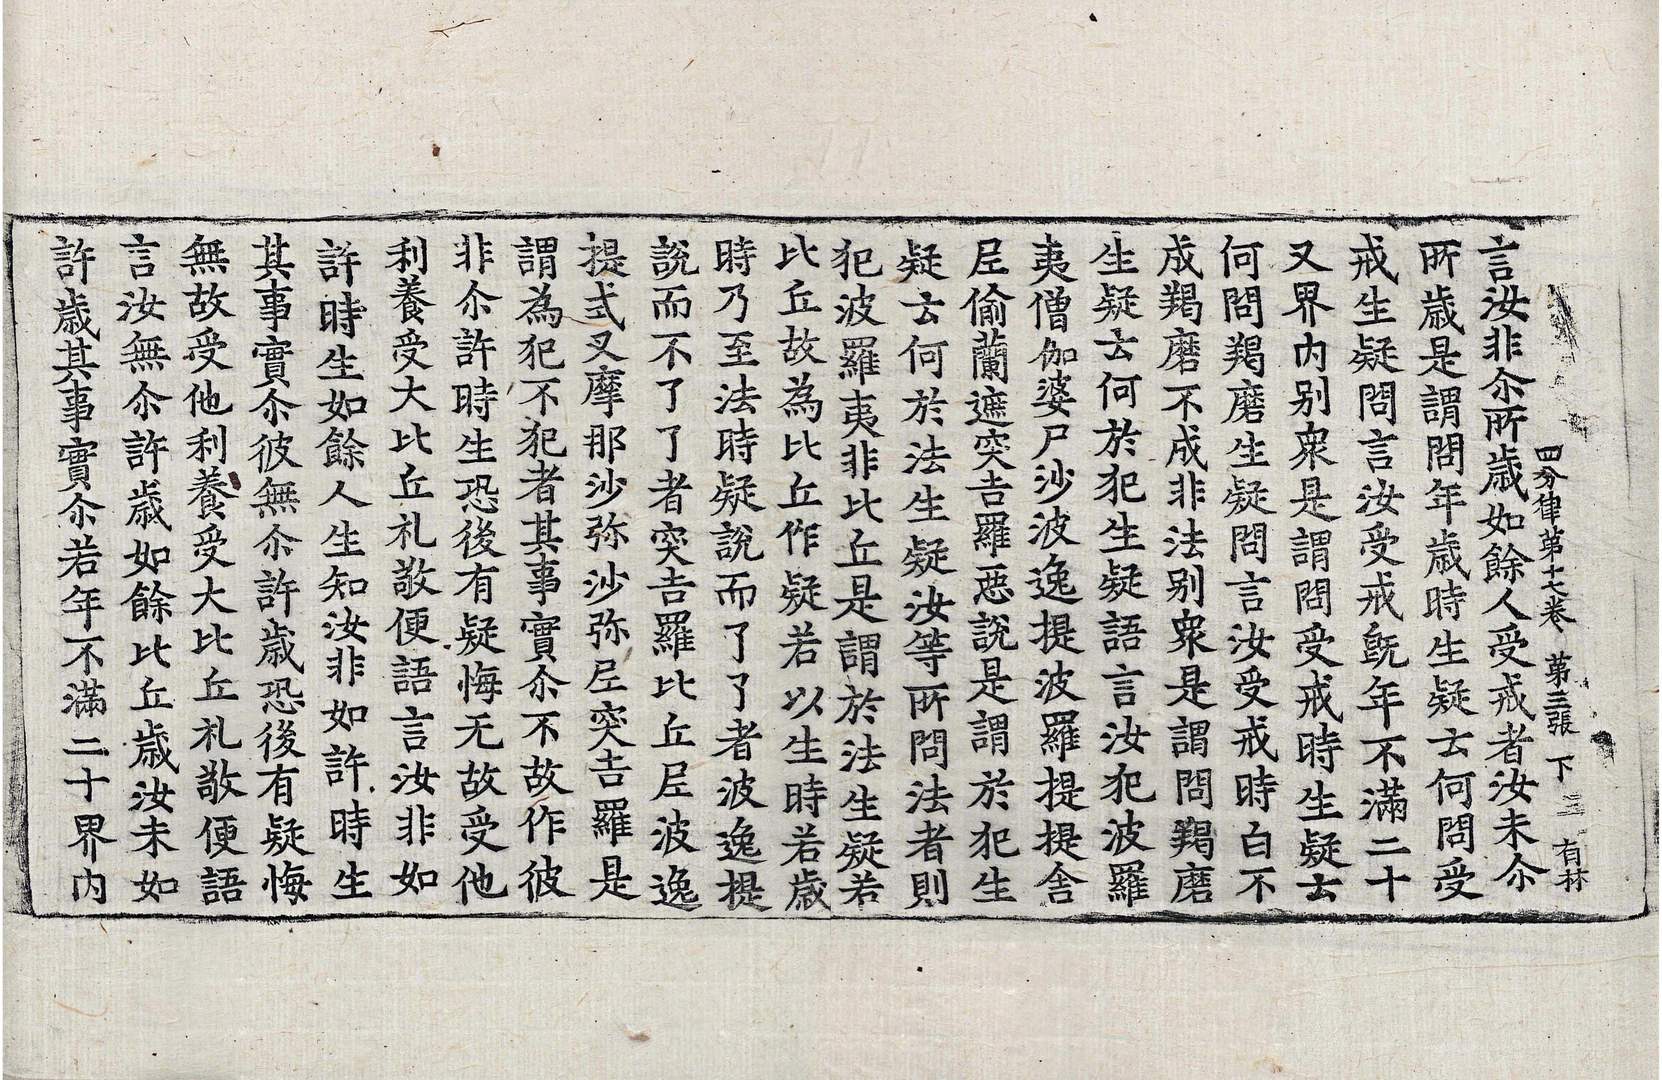 四分律第十七卷 第三張 下 三 有林
言汝非尒所歲如餘人受戒者汝未尒
所歲是謂問年歲時生疑云何問受
戒生疑問言汝受戒旣年不滿二十
又界内别衆是謂問受戒時生疑云
何問羯磨生疑問言汝受戒時白不
成羯磨不成非法别衆是謂問羯磨
生疑云何於犯生疑語言汝犯波羅
夷僧伽婆尸沙波逸提波羅提提舍
尼偷蘭遮突吉羅惡說是謂於犯生
疑云何於法生疑汝等所問法者則
犯波羅夷非比丘是謂於法生疑若
比丘故為比丘作疑若以生時若歲
時乃至法時疑說而了了者波逸提
說而不了了者突吉羅比丘尼波逸
提式叉摩那沙弥沙弥尼突吉羅是
謂為犯不犯者其事實尒不故作彼
非尒許時生恐後有疑悔无故受他
利養受大比丘礼敬便語言汝非如
許時生如餘人生知汝非如許時生
其事實尒彼無尒許歲恐後有疑悔
無故受他利養受大比丘礼敬便語
言汝無尒許歲如餘比丘歲汝未如
許歲其事實尒若年不滿二十界内